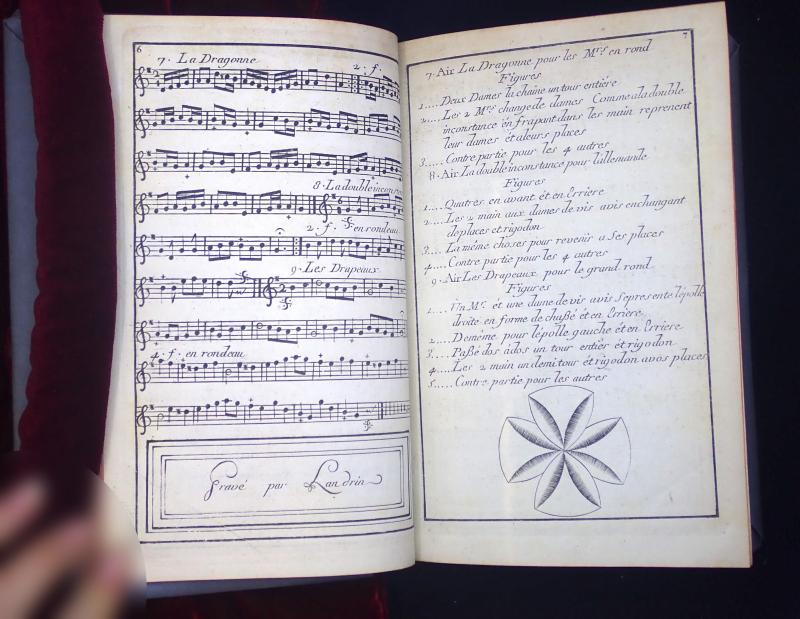 6
7. La Dragonne
2. f.
8. La double incons
2. f. en rondeau
9. Les Drapeaux
4. f. en rondeau
Gravé par Landrin
7
7. Air La Dragonne pour les Mrs. en rond
Figures
1.... Deux Dames la chaine un tour entiére
2.... Les 2 Mrs. change de dames Comme a la double
inconstance en frapant dans les main reprenent
leur dames et a leurs places
3.... Contre partie pour les 4 autres
8. Air La double inconstance pour lallemande
Figures
1.... Quatres en avant ét en Erriere
2.... Les 2 main aux dames de vis avis en changant
de places et rigodon
3.... La même choses pour revenir a Ses places
4.... Contre partie pour les 4 autres
9. Air Les Drapeaux pour le grand rond
Figures
1.... Un Mr. ét une dame de vis avis se presente lépolle
droite en forme de chaßé ét en Erriere
2.... De même pour lépolle gauche ét en Erriere
3.... Paßé dos ados un tour entiér ét rigodon
4.... Les 2 main un demi tour ét rigodon avos places
5.... Contre partie pour les autres